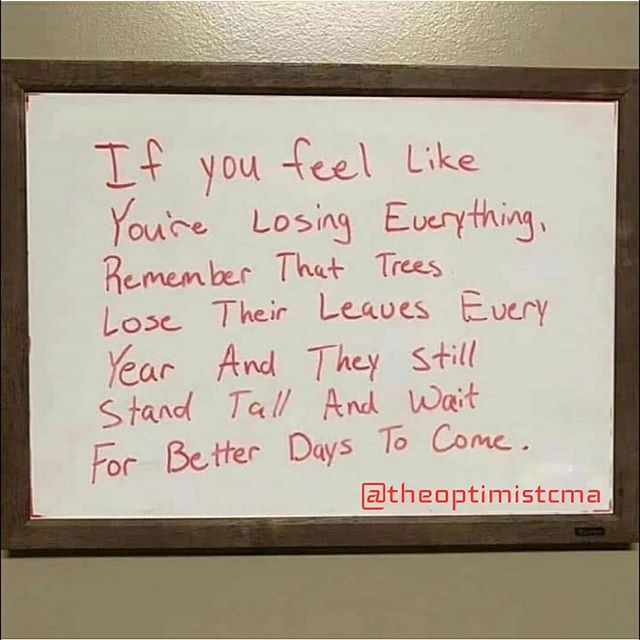 If you feel Like
You're Losing Everything,
Remember That Trees
Lose Their Leaves Every
Year And They Still
Stand Tall And Wait
For Better Days To Come.
@theoptimistcma